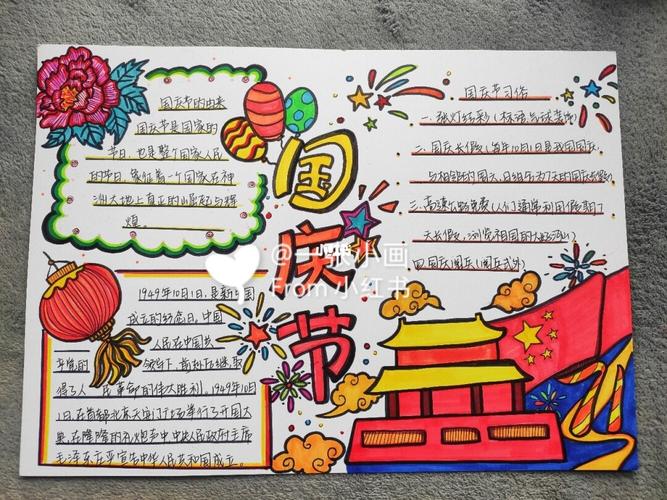 国庆节的由来
国庆节是国家的
节日,也是整个国家人民
的节日,象征着一个国家在神
洲大地上真正的崛起与辉
煌。
国庆节
1949年10月1日,是新中国
成立的纪念日,中国
人民在中国共
产党的领导下,前仆后继,取
得了人民革命的伟大胜利,1949年10月
1日,在首都北京天安门广场举行了开国大
典,在隆隆的礼炮声中,中央人民政府主席
毛泽东庄严宣告中华人民共和国成立。
国庆节习俗
一、张灯结彩(标语、气球、花
二、国庆长假(每年10月1日是我国国庆,
与相邻的周六、日组成为7天的国庆长假)
三、高速公路免费(人们通常利用假期7
天长假,浏览祖国的大好河山)
四、国庆阅兵(阅兵式
@一张小画
From 小红书